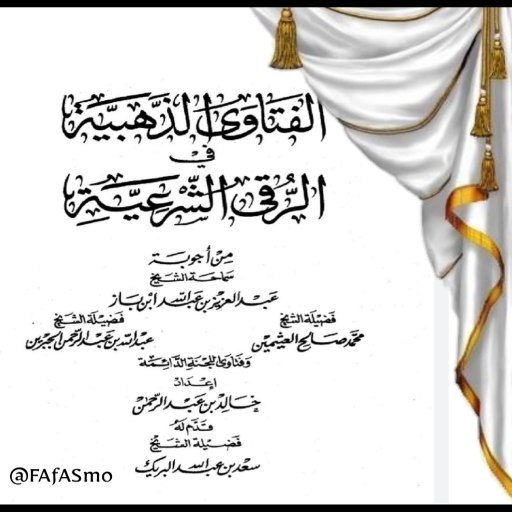 الفتاوى الذهبيّة
في
الرُّقى الشّرعيّة
مِن أجوبة
سماحة الشيخ
عبد العزيز بن عبد الله ابن باز
فضيلة الشيخ
محمد صالح العثيمين
فضيلة الشيخ
عبد الله بن عبد الرحمن الجبرين
وفتاوى اللجنة الدائمة
إعداد
خالد بن عبد الرحمن
قدّم له
فضيلة الشيخ
سعد بن عبد الله البريك
@FAfASmo